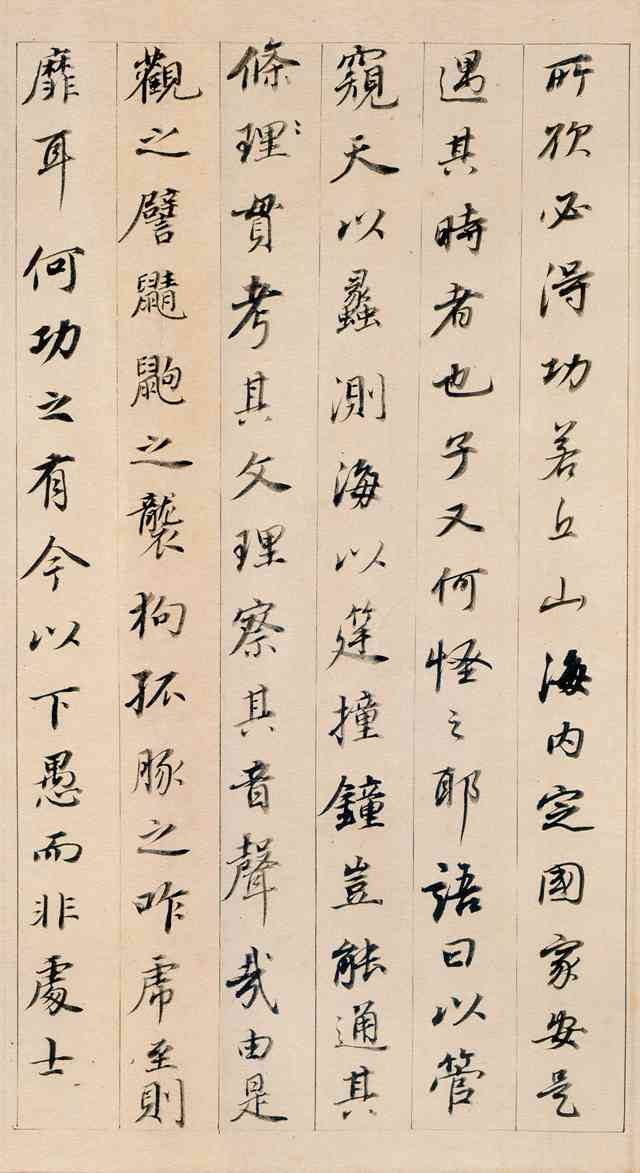 所欲必得功若丘山海內定國家安是
遇其時者也子又何怪之耶語曰以管
窺天以蠡測海以筳撞鐘豈能通其
條理〻貫考其文理察其音聲哉由是
觀之譬鼱鼩之襲狗孤豚之咋虎至則
靡耳何功之有今以下愚而非處士